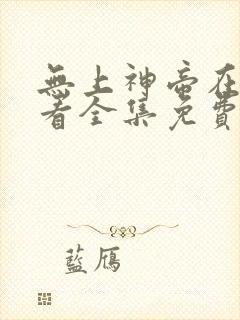 無上神帝在
看全集免費
藍鳫